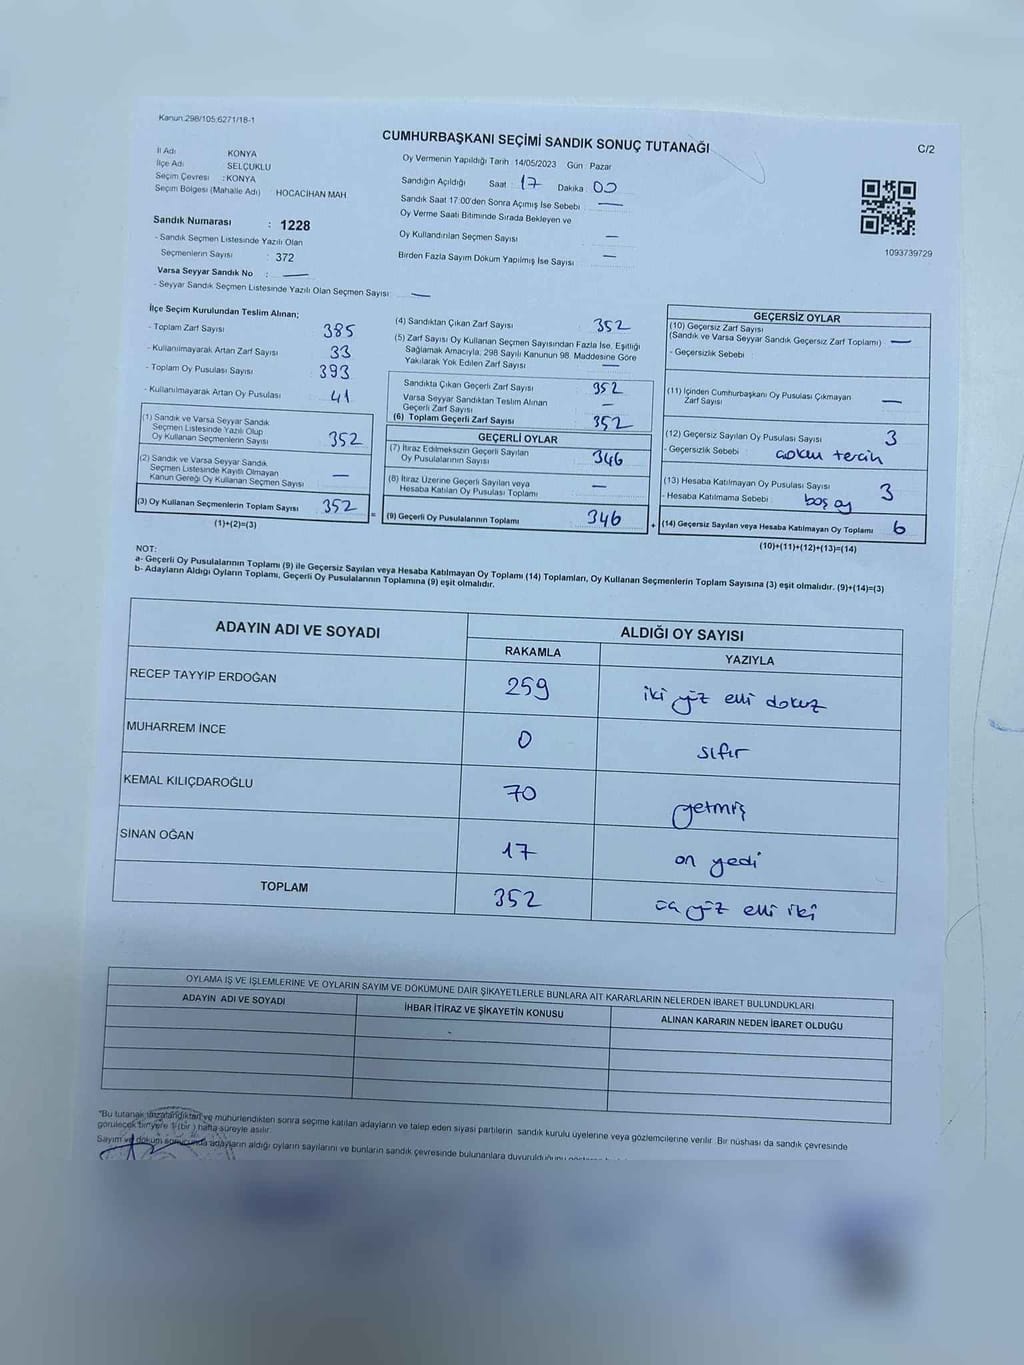 Kanun:298/105;6271/18-1
CUMHURBAŞKANI SEÇİMİ SANDIK SONUÇ TUTANAĞI
C/2
İl Adı KONYA
İlçe Adı SELÇUKLU
Seçim Çevresi : KONYA
Seçim Bölgesi (Mahalle Adı) HOCACİHAN MAH
Sandık Numarası : 1228
- Sandık Seçmen Listesinde Yazılı Olan
Seçmenlerin Sayısı : 372
Varsa Seyyar Sandık No : —
- Seyyar Sandık Seçmen Listesinde Yazılı Olan Seçmen Sayısı —
Oy Vermenin Yapıldığı Tarih :14/05/2023 Gün : Pazar
Sandığın Açıldığı Saat : 17 Dakika : 00
Sandık Saat 17:00'den Sonra Açılmış İse Sebebi —
Oy Verme Saati Bitiminde Sırada Bekleyen ve
Oy Kullandırılan Seçmen Sayısı —
Birden Fazla Sayım Döküm Yapılmış İse Sayısı —
1093739729
İlçe Seçim Kurulundan Teslim Alınan;
- Toplam Zarf Sayısı 385
- Kullanılmayarak Artan Zarf Sayısı 33
- Toplam Oy Pusulası Sayısı 393
- Kullanılmayarak Artan Oy Pusulası 41
(1) Sandık ve Varsa Seyyar Sandık
Seçmen Listesinde Yazılı Olup
Oy Kullanan Seçmenlerin Sayısı 352
(2) Sandık ve Varsa Seyyar Sandık
Seçmen Listesinde Kayıtlı Olmayan
Kanun Gereği Oy Kullanan Seçmen Sayısı —
(3) Oy Kullanan Seçmenlerin Toplam Sayısı 352
(1)+(2)=(3)
(4) Sandıktan Çıkan Zarf Sayısı 352
(5) Zarf Sayısı Oy Kullanan Seçmen Sayısından Fazla İse, Eşitliği
Sağlamak Amacıyla, 298 Sayılı Kanunun 98. Maddesine Göre
Yakılarak Yok Edilen Zarf Sayısı —
Sandıkta Çıkan Geçerli Zarf Sayısı 352
Varsa Seyyar Sandıktan Teslim Alınan
Geçerli Zarf Sayısı —
(6) Toplam Geçerli Zarf Sayısı 352
GEÇERLİ OYLAR
(7) İtiraz Edilmeksizin Geçerli Sayılan
Oy Pusulalarının Sayısı 346
(8) İtiraz Üzerine Geçerli Sayılan veya
Hesaba Katılan Oy Pusulası Toplamı —
= (9) Geçerli Oy Pusulalarının Toplamı 346
GEÇERSİZ OYLAR
(10) Geçersiz Zarf Sayısı
(Sandık ve Varsa Seyyar Sandık Geçersiz Zarf Toplamı) —
- Geçersizlik Sebebi :
(11) İçinden Cumhurbaşkanı Oy Pusulası Çıkmayan
Zarf Sayısı —
(12) Geçersiz Sayılan Oy Pusulası Sayısı 3
- Geçersizlik Sebebi : tercih
(13) Hesaba Katılmayan Oy Pusulası Sayısı 3
- Hesaba Katılmama Sebebi : boş oy
+ (14) Geçersiz Sayılan veya Hesaba Katılmayan Oy Toplamı 6
(10)+(11)+(12)+(13)=(14)
NOT:
a- Geçerli Oy Pusulalarının Toplamı (9) ile Geçersiz Sayılan veya Hesaba Katılmayan Oy Toplamı (14) Toplamları, Oy Kullanan Seçmenlerin Toplam Sayısına (3) eşit olmalıdır. (9)+(14)=(3)
b- Adayların Aldığı Oyların Toplamı, Geçerli Oy Pusulalarının Toplamına (9) eşit olmalıdır.
ADAYIN ADI VE SOYADI ALDIĞI OY SAYISI
RAKAMLA YAZIYLA
RECEP TAYYİP ERDOĞAN 259 iki yüz elli dokuz
MUHARREM İNCE 0 sıfır
KEMAL KILIÇDAROĞLU 70 yetmiş
SİNAN OĞAN 17 on yedi
TOPLAM 352 üç yüz elli iki
OYLAMA İŞ VE İŞLEMLERİNE VE OYLARIN SAYIM VE DÖKÜMÜNE DAİR ŞİKAYETLERLE BUNLARA AİT KARARLARIN NELERDEN İBARET BULUNDUKLARI
ADAYIN ADI VE SOYADI İHBAR İTİRAZ VE ŞİKAYETİN KONUSU ALINAN KARARIN NEDEN İBARET OLDUĞU
"Bu tutanak imzalandıktan ve mühürlendikten sonra seçime katılan adayların ve talep eden siyasi partilerin sandık kurulu üyelerine veya gözlemcilerine verilir. Bir nüshası da sandık çevresinde
görülecek bir yere 1 (bir ) hafta süreyle asılır.
Sayım ve döküm sonucunda adayların aldığı oyların sayılarını ve bunların sandık çevresinde bulunanlara duyurulduğunu